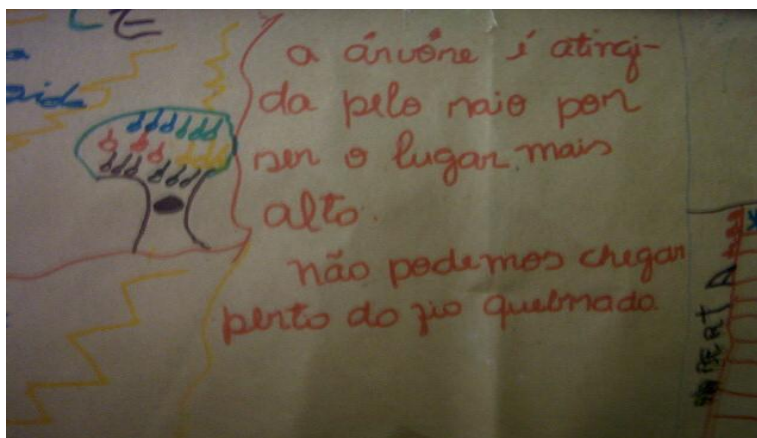 a árvore é atingi-
da pelo raio por
ser o lugar mais
alto.
não podemos chegar
perto do fio quebrado